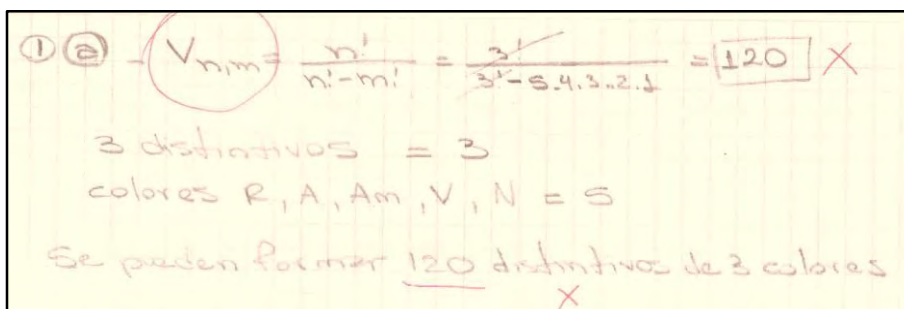 ① ⓐ - V n,m = n! / n! - m! = 3! / 3! - 5.4.3.2.1 = 120 X
3 distintivos = 3
colores R, A, Am, V, N = 5
Se pueden formar 120 distintivos de 3 colores
X